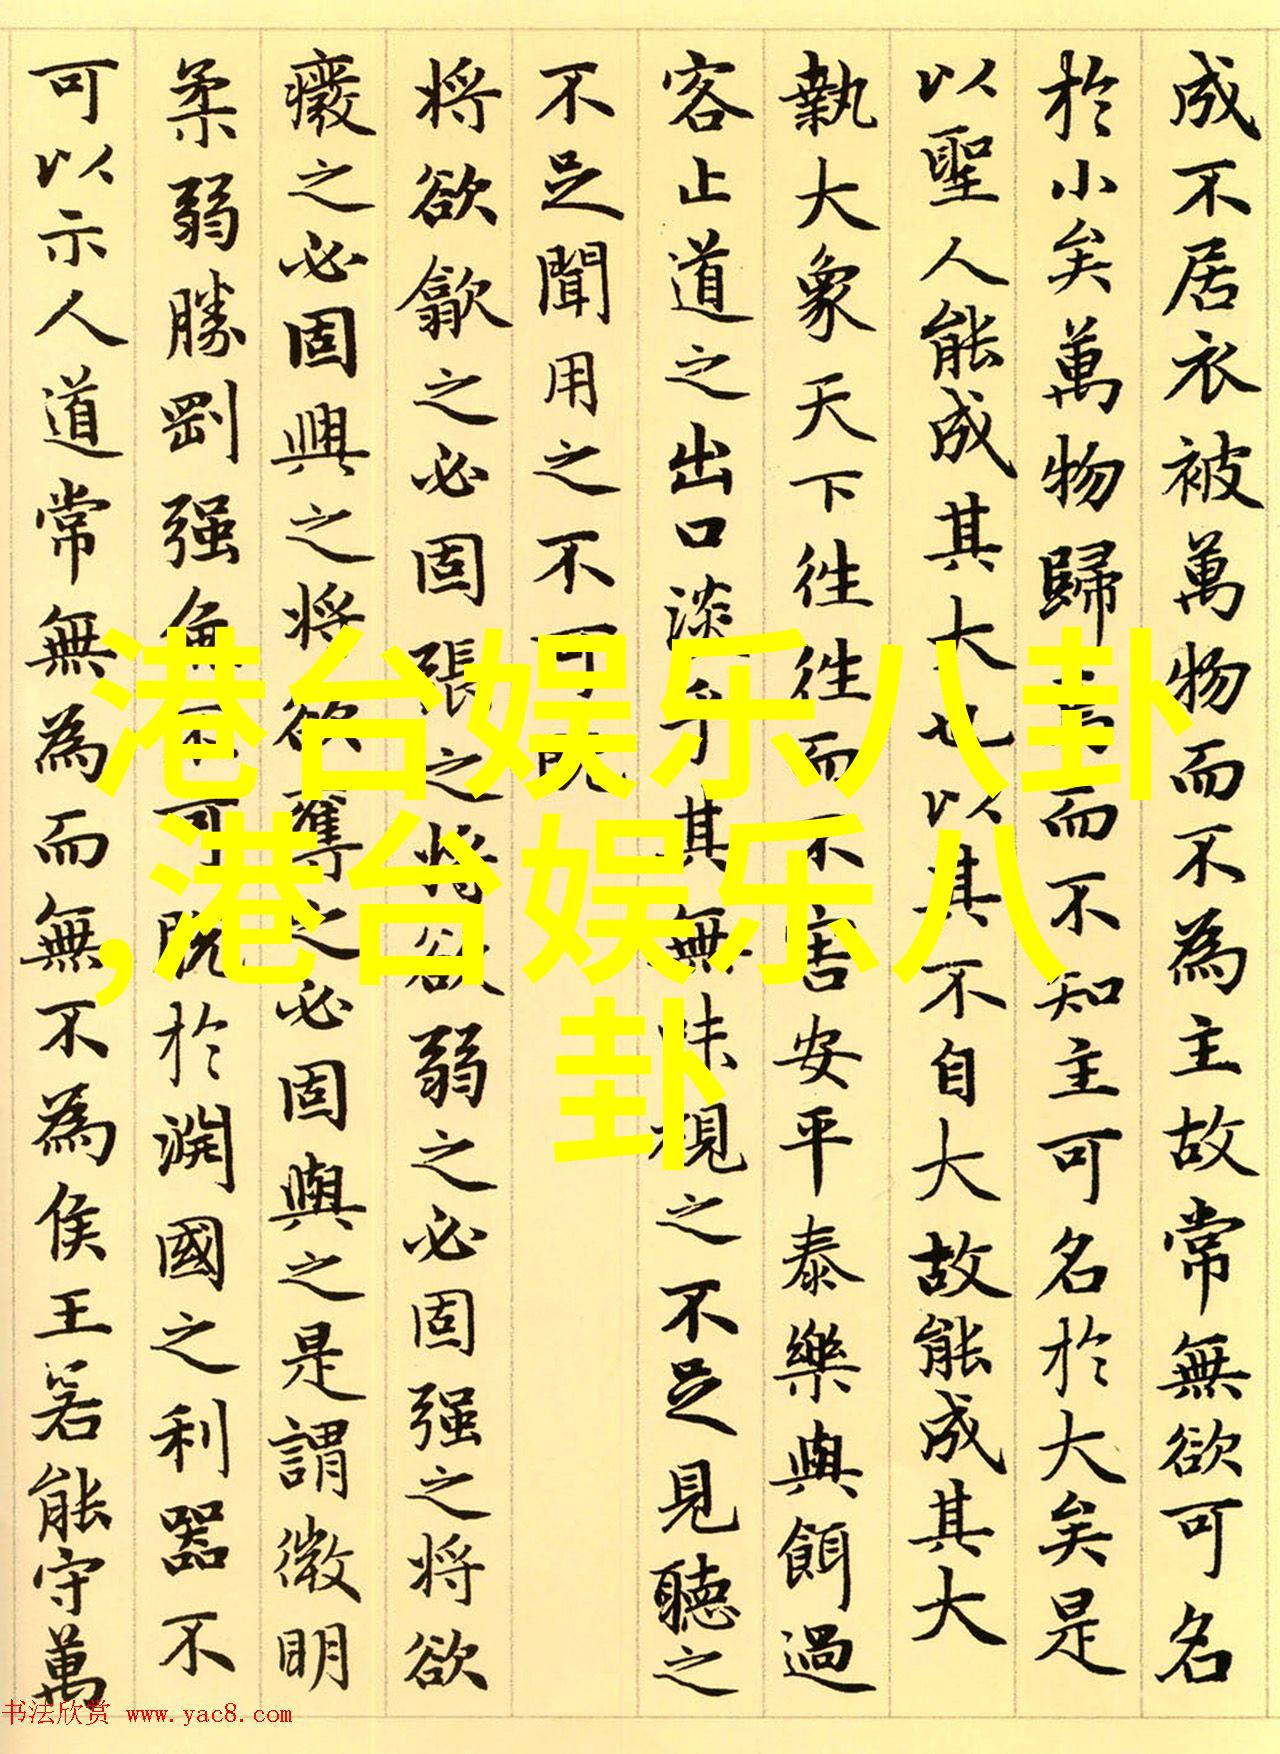 成不居衣被萬物而不為主故常無欲可名
於小矣萬物歸焉而不知主可名於大矣是
以聖人能成其大也以其不自大故能成其大
執大象天下往往而不害安平泰樂與餌過
客止道之出口淡乎其無味視之不足見聽之
不足聞用之不可既
将欲歙之必固張之将欲弱之必固强之将欲
廢之必固興之将欲奪之必固與之是謂微明
柔弱勝剛强魚不可脱於淵國之利器不
可以示人道常無為而無不為侯王若能守萬
港台娱乐八卦
,港台娱乐八
卦
书法欣赏 www.yac8.com